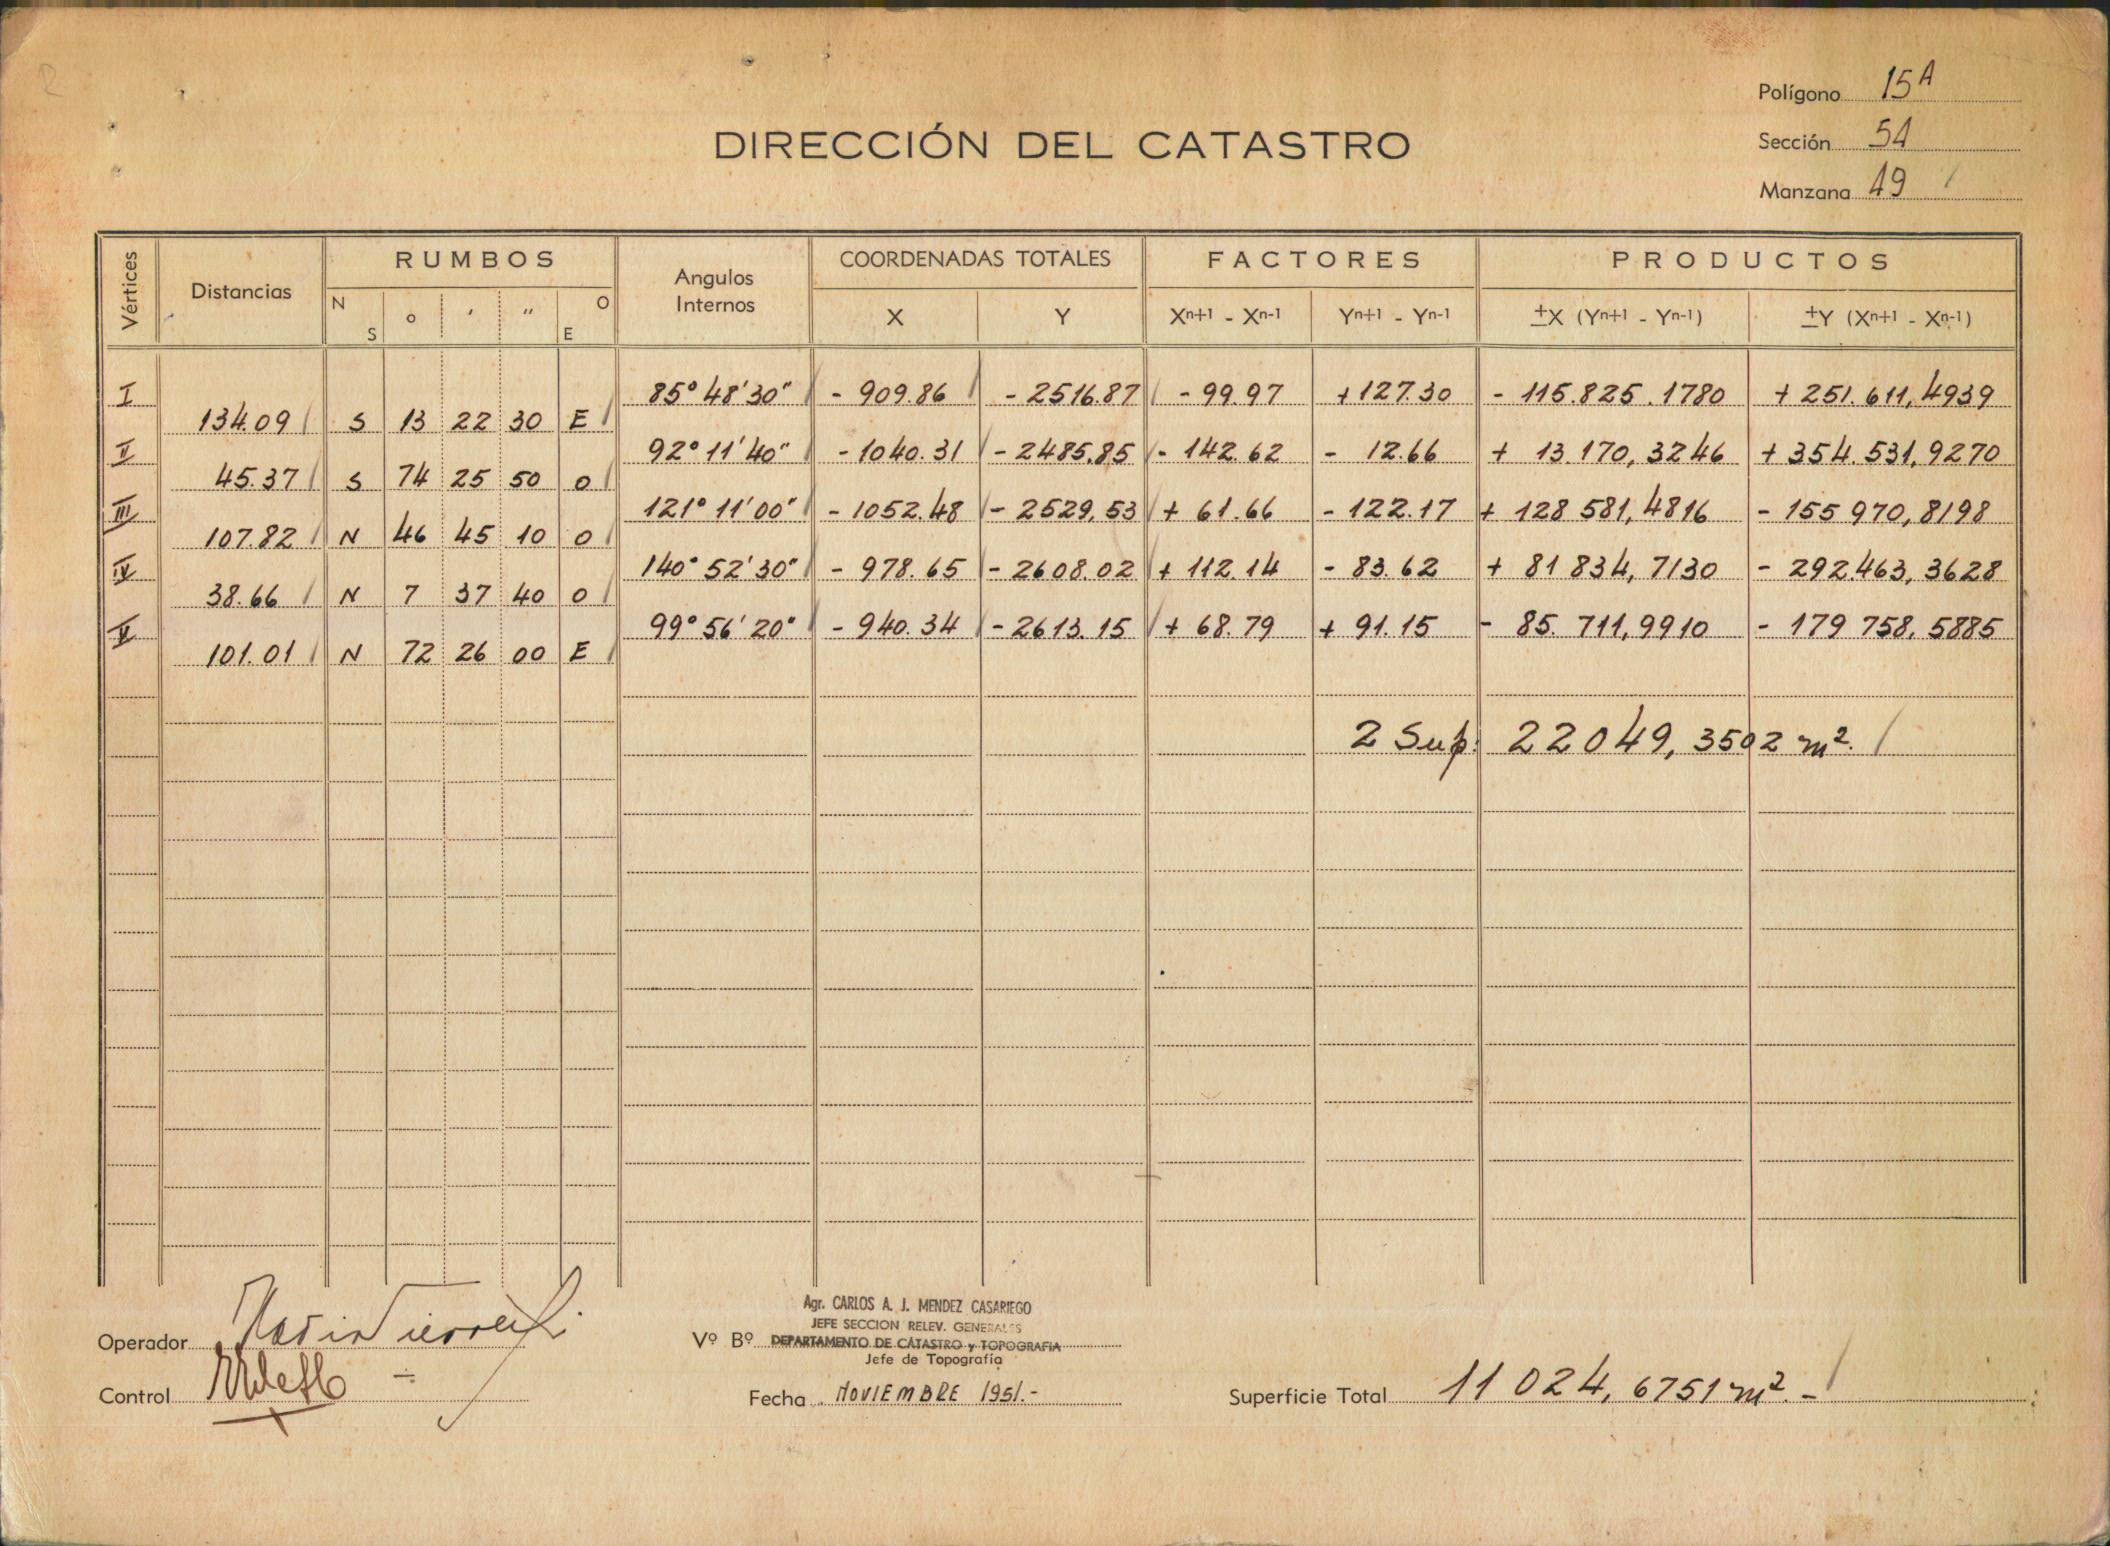 Polígono 15A
DIRECCIÓN DEL CATASTRO
Sección 54
Manzana 49
Vértices Distancias RUMBOS Angulos Internos COORDENADAS TOTALES FACTORES PRODUCTOS
N S ° ' " O E X Y Xn+1 - Xn-1 Yn+1 - Yn-1 ±X (Yn+1 - Yn-1) ±Y (Xn+1 - Xn-1)
I 85° 48' 30" - 909.86 - 2516.87 - 99.97 + 127.30 - 115.825.1780 + 251.611,4939
134.09 S 13 22 30 E
II 92° 11' 40" - 1040.31 - 2485.85 - 142.62 - 12.66 + 13.170,3246 + 354.531,9270
45.37 S 74 25 50 O
III 121° 11' 00" - 1052.48 - 2529,53 + 61.66 - 122.17 + 128 581,4816 - 155 970,8198
107.82 N 46 45 10 O
IV 140° 52' 30" - 978.65 - 2608.02 + 112.14 - 83.62 + 81 834,7130 - 292.463,3628
38.66 N 7 37 40 O
V 99° 56' 20" - 940.34 - 2613.15 + 68.79 + 91.15 - 85.711,9910 - 179 758,5885
101.01 N 72 26 00 E
2 Sup: 22049,3502 m².
Agr. CARLOS A. J. MENDEZ CASARIEGO
JEFE SECCION RELEV. GENERALES
Operador Vº Bº DEPARTAMENTO DE CATASTRO y TOPOGRAFIA
Jefe de Topografía
Control Fecha NOVIEMBRE 1951.- Superficie Total 11 024,6751 m².-